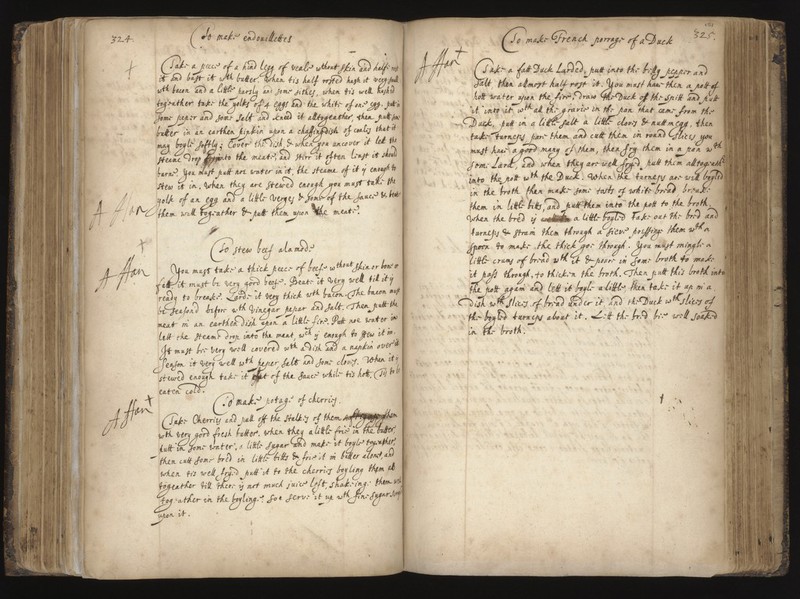 324
To make endouillettes
Take a peece of a nead legg of veale wthout skin and half rost
it and bast it wth butter. when tis half rosted hash it very small
wth bacon and a little parsly in som dishes, when tis well hashed
togeather take the yolks of 2 eggs and the white of one egg. putt in
some peper and some salt and knead it alltogeather, then putt som
butter in an earthen pipkin upon a chaffindish of coales that it
may boyle softly; Cover the dish & when you uncover it let the
steame drop into the meate, and stir it often least it should
turne. You must putt noe water in it, the steame of it is enough to
stew it in. When they are stewed enough you must take the
yolk of an egg and a little verges & some of the sauce & beate
them well togeather & putt them upon the meate.
A Han
To stew beef alamode
A Han
You must take a thick peece of beefe wthout skin or bone or
fatt it must be very good beefe. Beat it very well till it is
ready to breake. Larde it very thick wth bacon. The bacon must
be seasond before wth vinegar peper and salt. Then putt the
meat in an earthen dish upon a little fire. Putt noe water in
lett the steame drop into the meat wch is enough to stew it in.
It must be very well covered wth a dish and a napkin over it
Season it very well wth peper salt and some cloves. When it is
stewed enough take it out of the sauce while tis hott, Tis to be
eaten cold.
To make potage of cherries
A Han
Take Cherries and pull off the stalkes of them
wth very good fresh butter. when they a little frie in the butter,
putt in some water, a little sugar and make it boyle togeather,
then cutt some bred in little bitts & frie it in butter alone, and
when tis well fryed putt it to the cherries boyling them all
togeather till there is not much juice left, shaking them well
togeather in the boyling. Soe serve it up wth fine sugar
upon it.
325
To make French porrage of a Duck
A Han
Take a fatt Duck Larded, putt into the belly peper and
salt then allmost half rost it. You must have then a pott of
hott water upon the fire, draw the Duck off the spitt and putt
it into it wth all the gravie in the pan that came from the
Duck, putt in a little salt a little cloves & nuttmegg, then
take Turneps pare them and cutt them in round slices you
must have a good many of them, then fry them in a pan wth
some Lard, and when they are well fryed, putt them altogeather
into the pott wth the Duck. When the turneps are well boyled
in the broth then make some tosts of white bread breake
them in little bits, and putt them into the pott to the broth,
when the bred is a little boyled Take out the bred and
turneps & strain them through a sieve pressing them wth a
spoon to make the thick goe through. You must mingle a
little crums of bread wth it & power in some broth to make
it pass through, to thicken the broth. Then putt this broth into
the pott again and lett it boyle a little, then take it up in a
Dish wth slices of bread under it and the Duck wth slices of
the boyled turneps about it. Let the bred bee well soaked
in the broth.